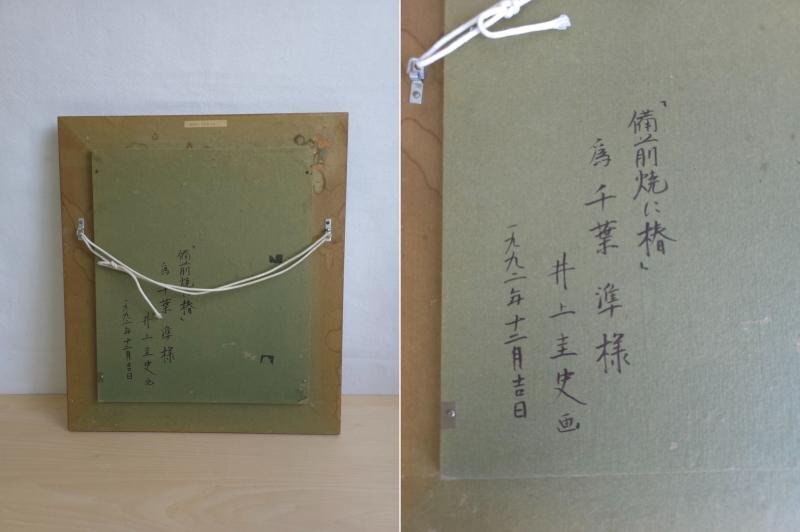 「備前焼に椿」
為 千葉 準 様
井上圭史 画
一九九二年十二月吉日
「備前焼に椿」
為 千葉 準 様
井上圭史 画
一九九二年十二月吉日